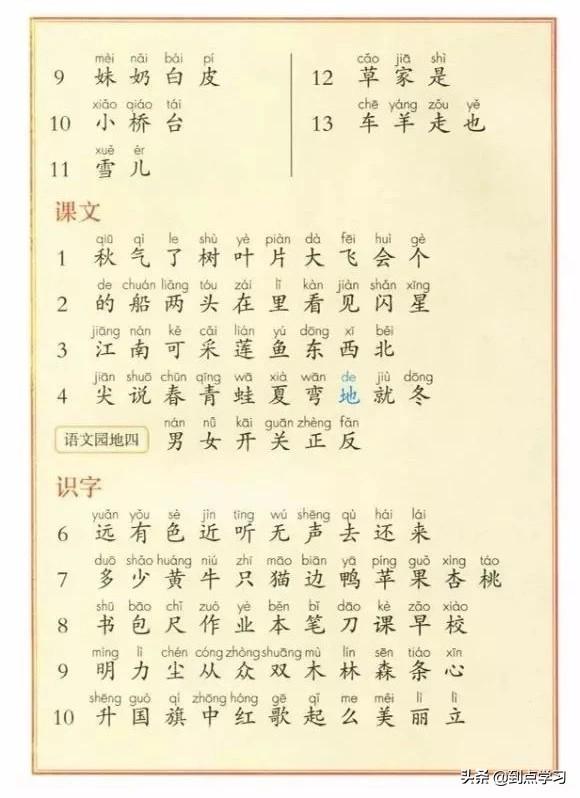 mèi nǎi bái pí
9 妹 奶 白 皮
xiǎo qiáo tái
10 小 桥 台
xuě ér
11 雪 儿
cǎo jiā shì
12 草 家 是
chē yáng zǒu yě
13 车 羊 走 也
课文
qiū qì le shù yè piàn dà fēi huì gè
1 秋 气 了 树 叶 片 大 飞 会 个
de chuán liǎng tóu zài lǐ kàn jiàn shǎn xīng
2 的 船 两 头 在 里 看 见 闪 星
jiāng nán kě cǎi lián yú dōng xī běi
3 江 南 可 采 莲 鱼 东 西 北
jiān shuō chūn qīng wā xià wān de jiù dōng
4 尖 说 春 青 蛙 夏 弯 地 就 冬
nán nǚ kāi guān zhèng fǎn
语文园地四 男 女 开 关 正 反
识字
yuǎn yǒu sè jìn tīng wú shēng qù hái lái
6 远 有 色 近 听 无 声 去 还 来
duō shǎo huáng niú zhī māo biān yā píng guǒ xìng táo
7 多 少 黄 牛 只 猫 边 鸭 苹 果 杏 桃
shū bāo chǐ zuò yè běn bǐ dāo kè zǎo xiào
8 书 包 尺 作 业 本 笔 刀 课 早 校
míng lì chén cóng zhòng shuāng mù lín sēn tiáo xīn
9 明 力 尘 从 众 双 木 林 森 条 心
shēng guó qí zhōng hóng gē qǐ me měi lì lì
10 升 国 旗 中 红 歌 起 么 美 丽 立
头条 @到点学习